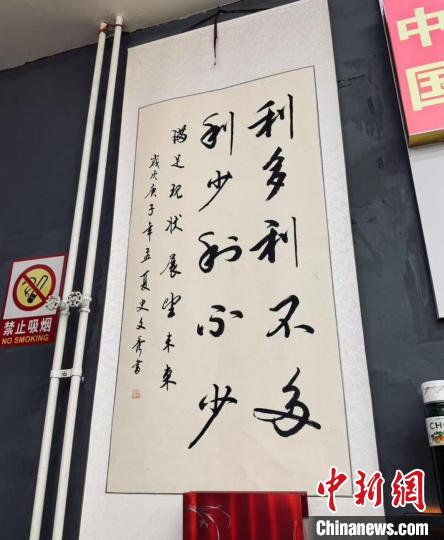 利多利不多
利少利不少
满足现状展望未来
岁次庚子年孟夏史文秀書
禁止吸烟
NO SMOKING
中
国
CH
中新网
Chinanews.com